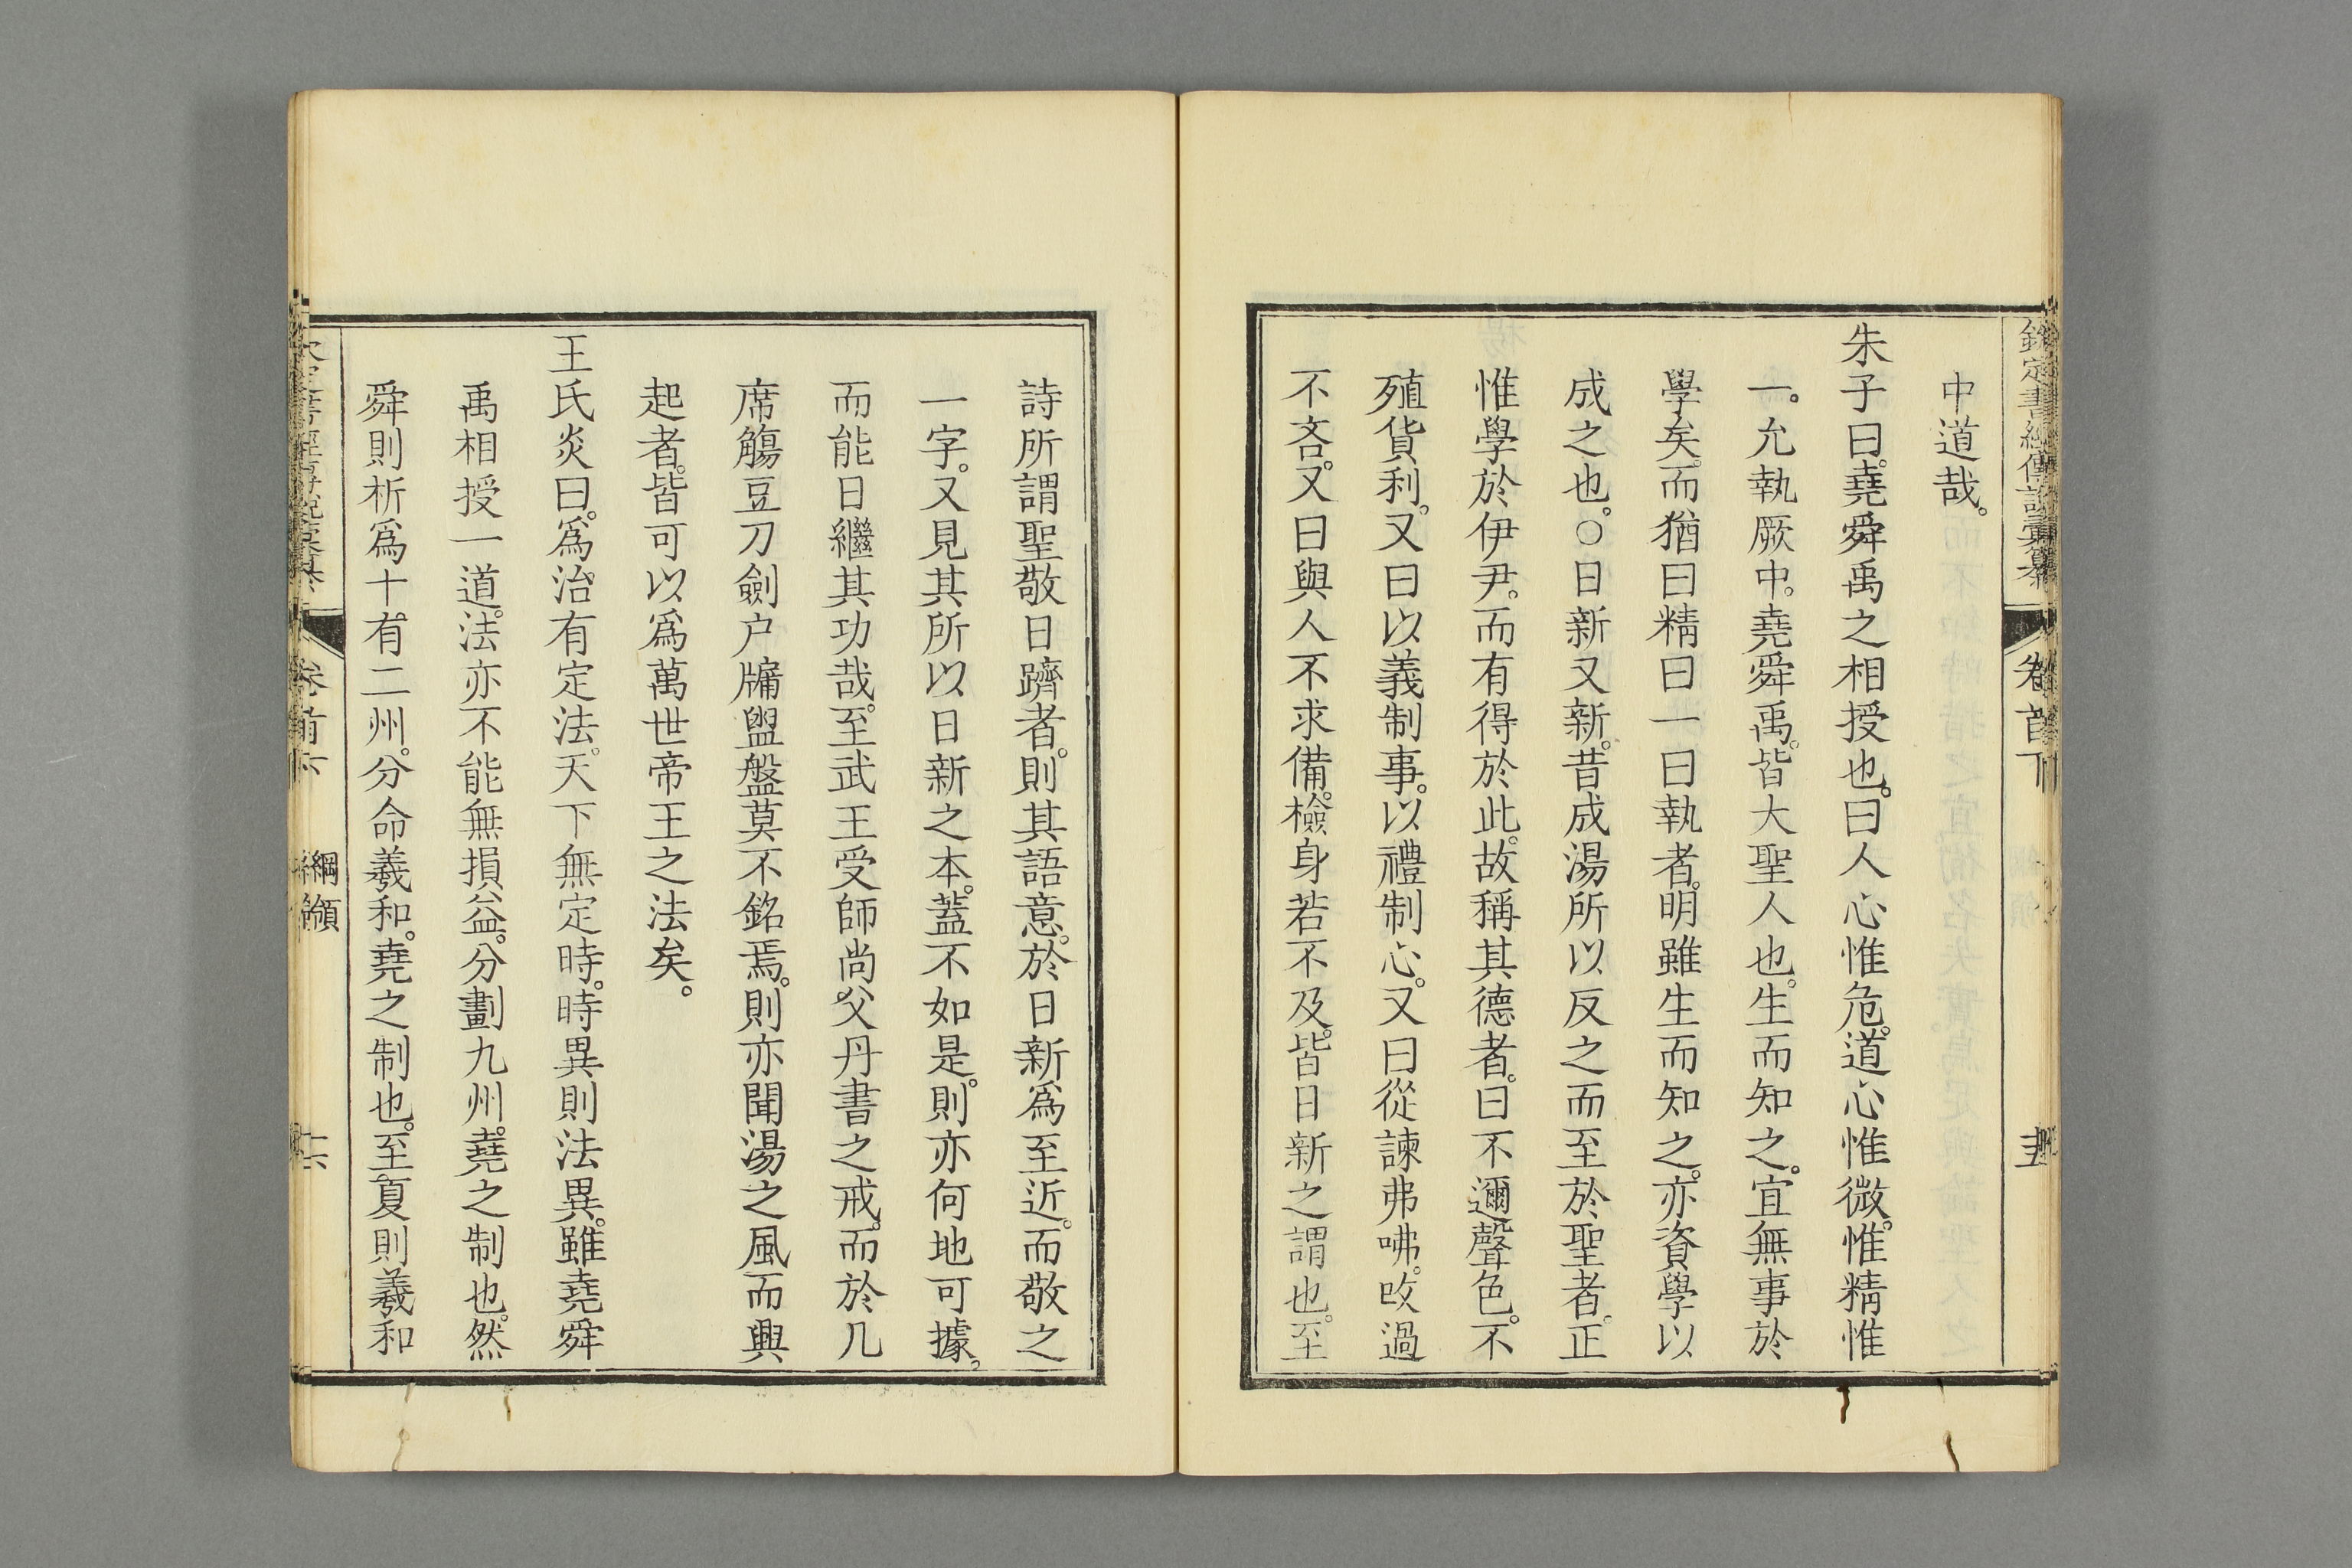 欽定書經傳說彙纂 卷首下
中道哉。
朱子曰。堯舜禹之相授也。曰人心惟危。道心惟微。惟精惟
一。允執厥中。堯舜禹。皆大聖人也。生而知之。宜無事於
學矣。而猶曰精曰一曰執者。明雖生而知之。亦資學以
成之也。○日新又新。昔成湯所以反之而至於聖者。正
惟學於伊尹。而有得於此。故稱其德者。曰不邇聲色。不
殖貨利。又曰以義制事。以禮制心。又曰從諫弗咈。改過
不吝。又曰與人不求備。檢身若不及。皆日新之謂也。至
詩所謂聖敬日躋者。則其語意。於日新爲至近。而敬之
一字。又見其所以日新之本。蓋不如是。則亦何地可據。
而能日繼其功哉。至武王受師尚父丹書之戒。而於几
席觴豆刀劍户牖盥盤莫不銘焉。則亦聞湯之風而興
起者。皆可以爲萬世帝王之法矣。
王氏炎曰。爲治有定法。天下無定時。時異則法異。雖堯舜
禹相授一道。法亦不能無損益。分劃九州。堯之制也。然
舜則析爲十有二州。分命羲和。堯之制也。至夏則羲和
綱領